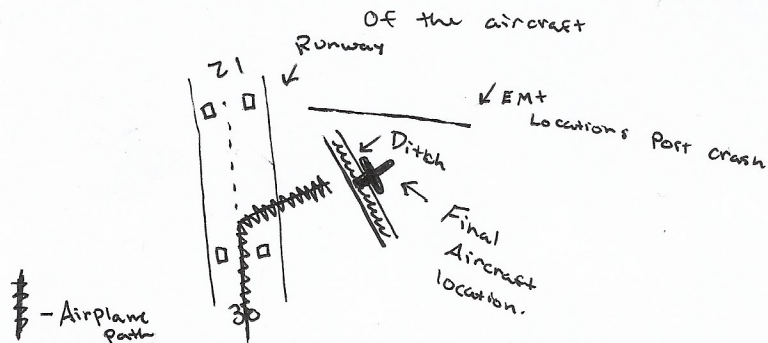 Of the aircraft
Runway
21
EMt
Locations Post crash
Ditch
Final
Aircraft
location.
30
- Airplane
path